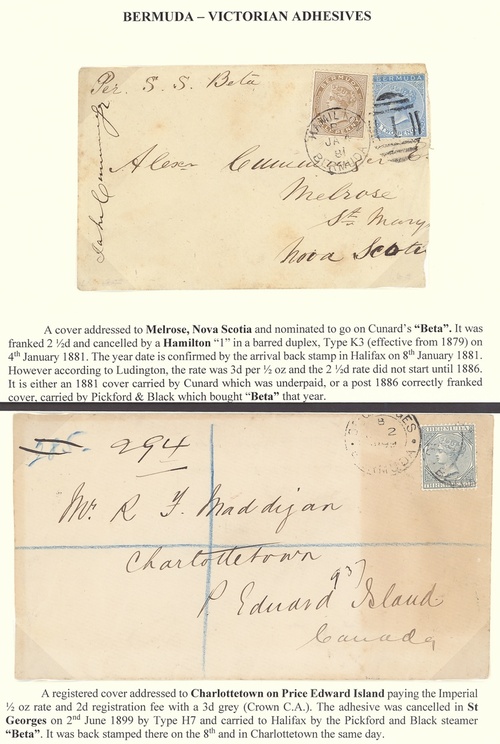 BERMUDA – VICTORIAN ADHESIVES
Per. S. S. Beta
BERMUDA
BERMUDA
HAMILTON
JA
81
BERMUDA
1
Alexr
Melrose
St. Mary
Nova Scotia
A cover addressed to Melrose, Nova Scotia and nominated to go on Cunard's "Beta". It was
franked 2 ½d and cancelled by a Hamilton "1" in a barred duplex, Type K3 (effective from 1879) on
4th January 1881. The year date is confirmed by the arrival back stamp in Halifax on 8th January 1881.
However according to Ludington, the rate was 3d per ½ oz and the 2 ½d rate did not start until 1886.
It is either an 1881 cover carried by Cunard which was underpaid, or a post 1886 correctly franked
cover, carried by Pickford & Black which bought "Beta" that year.
294
BERMUDA
Mr. R F. Maddigan
Charlottetown
937
P. Eduard Island
Canada
A registered cover addressed to Charlottetown on Price Edward Island paying the Imperial
½ oz rate and 2d registration fee with a 3d grey (Crown C.A.). The adhesive was cancelled in St
Georges on 2nd June 1899 by Type H7 and carried to Halifax by the Pickford and Black steamer
"Beta". It was back stamped there on the 8th and in Charlottetown the same day.